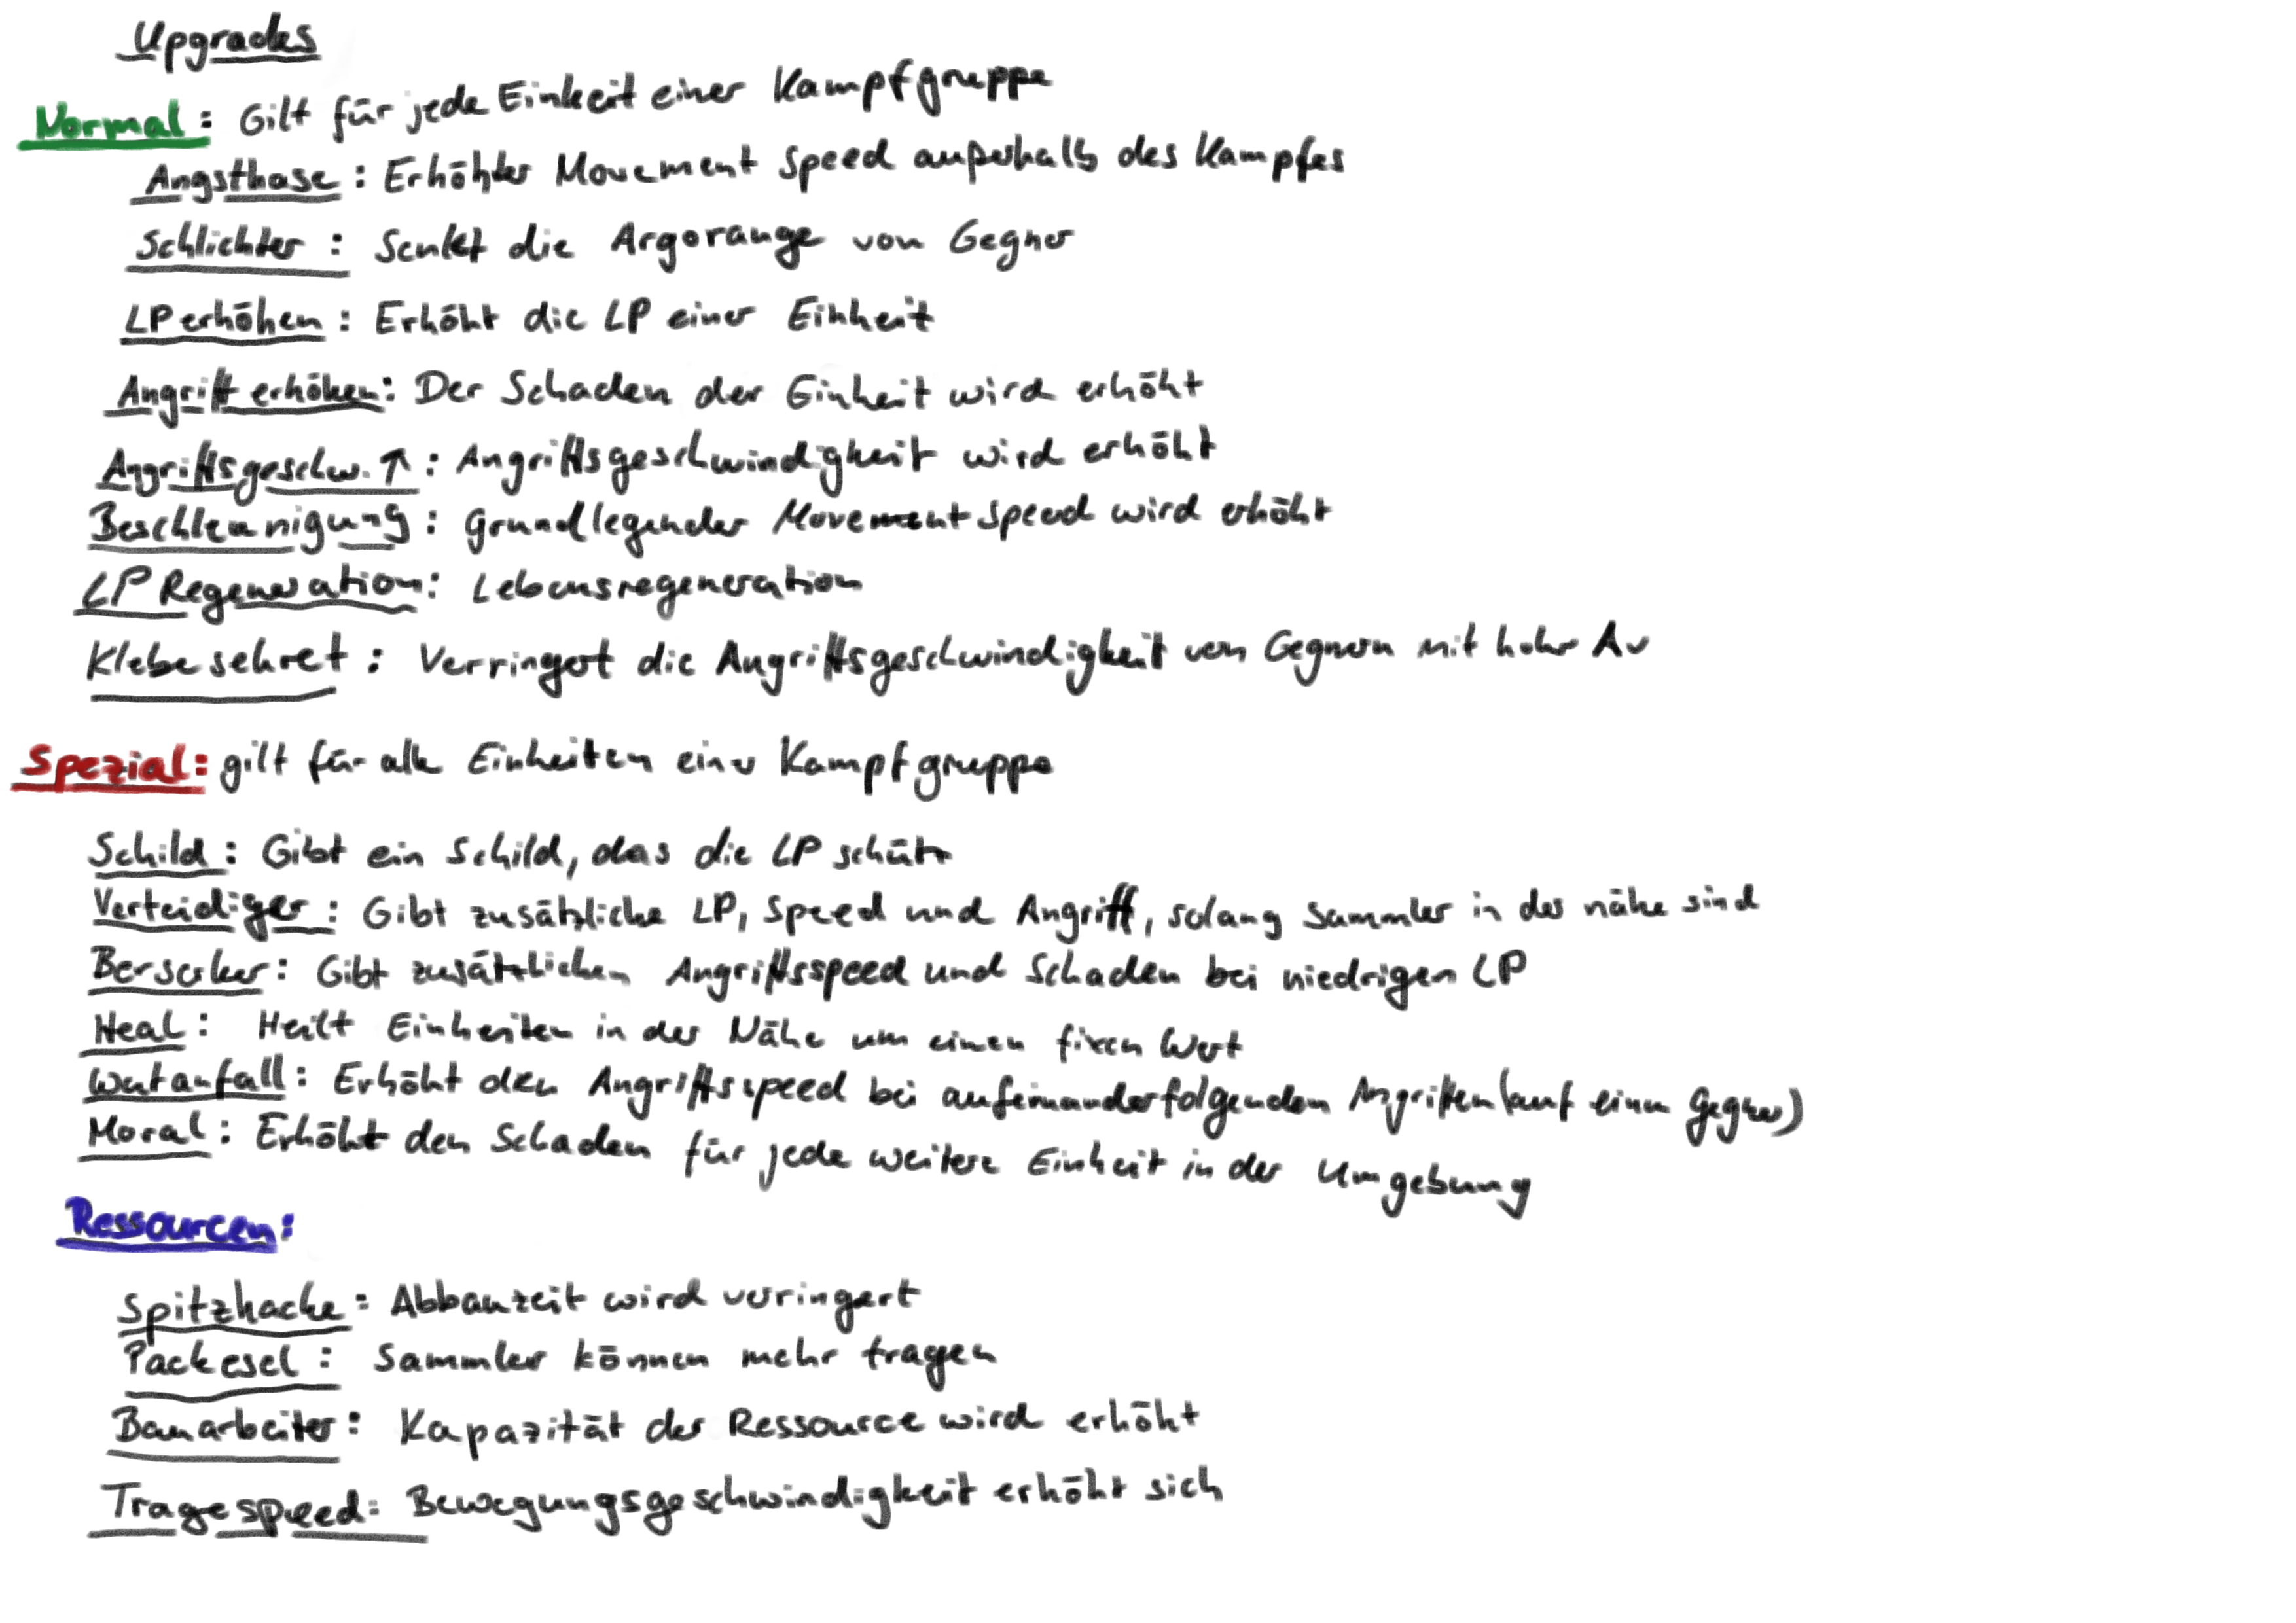 Upgrades
Normal: Gilt für jede Einheit einer Kampfgruppe
Angsthase: Erhöhter Movement Speed außerhalb des Kampfes
Schlichter: Senkt die Argorange von Gegner
LP erhöhen: Erhöht die LP einer Einheit
Angriff erhöhen: Der Schaden der Einheit wird erhöht
Angriffsgeschw. ↑: Angriffsgeschwindigkeit wird erhöht
Beschleunigung: Grundlegender Movementspeed wird erhöht
LP Regeneration: Lebensregeneration
Klebesekret: Verringert die Angriffsgeschwindigkeit von Gegnern mit hoher Av
Spezial: gilt für alle Einheiten einer Kampfgruppe
Schild: Gibt ein Schild, das die LP schützt
Verteidiger: Gibt zusätzliche LP, Speed und Angriff, solang Sammler in der nähe sind
Berserker: Gibt zusätzlichen Angriffsspeed und Schaden bei niedrigen LP
Heal: Heilt Einheiten in der Nähe um einen fixen Wert
Wutanfall: Erhöht den Angriffsspeed bei aufeinanderfolgenden Angriffen (auf einen Gegner)
Moral: Erhöht den Schaden für jede weitere Einheit in der Umgebung
Ressourcen:
Spitzhacke: Abbauzeit wird verringert
Packesel: Sammler können mehr tragen
Bauarbeiter: Kapazität der Ressource wird erhöht
Tragespeed: Bewegungsgeschwindigkeit erhöht sich